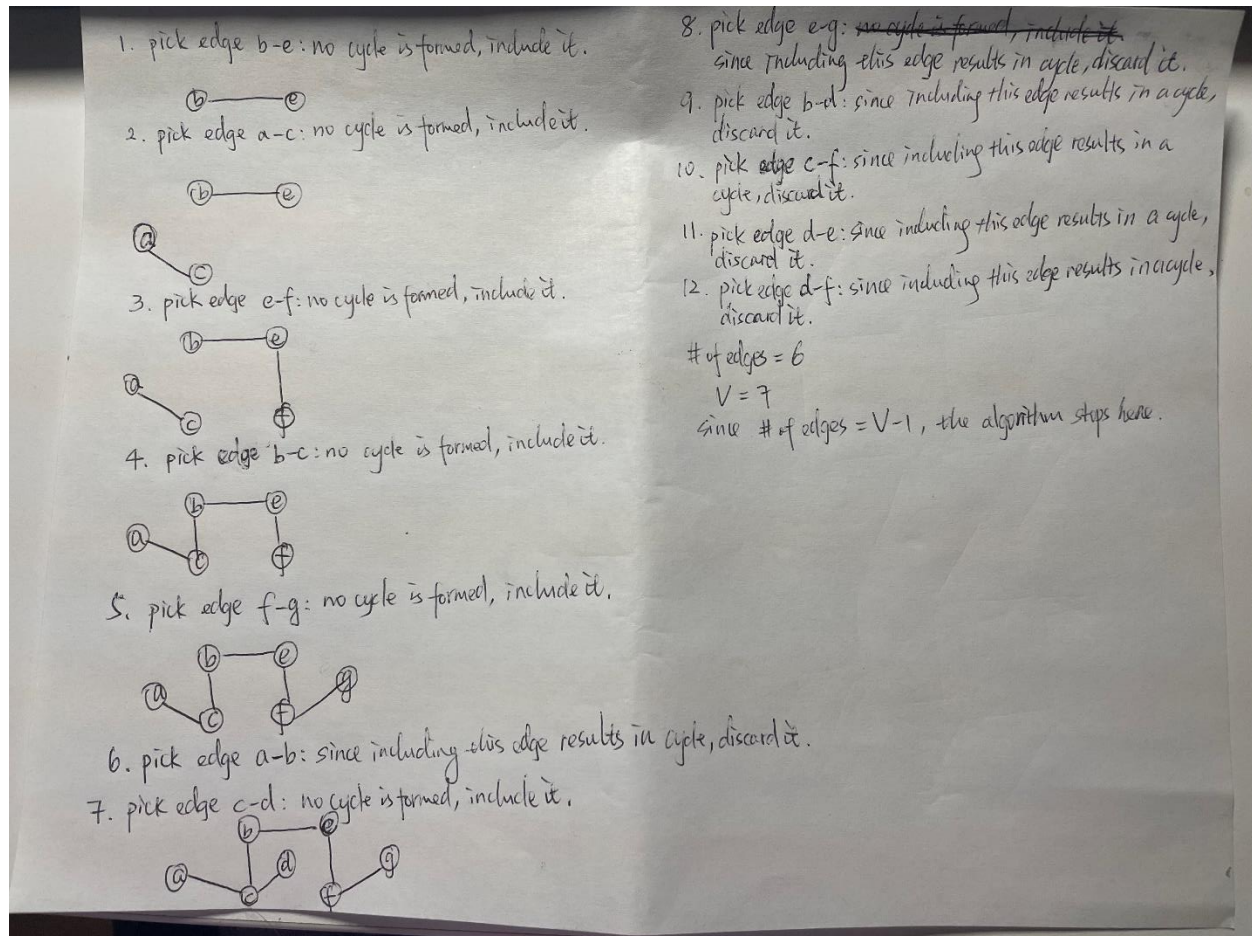 1. pick edge b-e: no cycle is formed, include it.
b e
2. pick edge a-c: no cycle is formed, include it.
b e
a
c
3. pick edge e-f: no cycle is formed, include it.
b e
a
c f
4. pick edge b-c: no cycle is formed, include it.
b e
a
c f
5. pick edge f-g: no cycle is formed, include it.
b e
a g
c f
6. pick edge a-b: since including this edge results in cycle, discard it.
7. pick edge c-d: no cycle is formed, include it.
b e
a d g
c f
8. pick edge e-g: no cycle is formed, include it.
since including this edge results in cycle, discard it.
9. pick edge b-d: since including this edge results in a cycle,
discard it.
10. pick edge c-f: since including this edge results in a
cycle, discard it.
11. pick edge d-e: since including this edge results in a cycle,
discard it.
12. pick edge d-f: since including this edge results in a cycle,
discard it.
# of edges = 6
V = 7
since # of edges = V-1, the algorithm stops here.